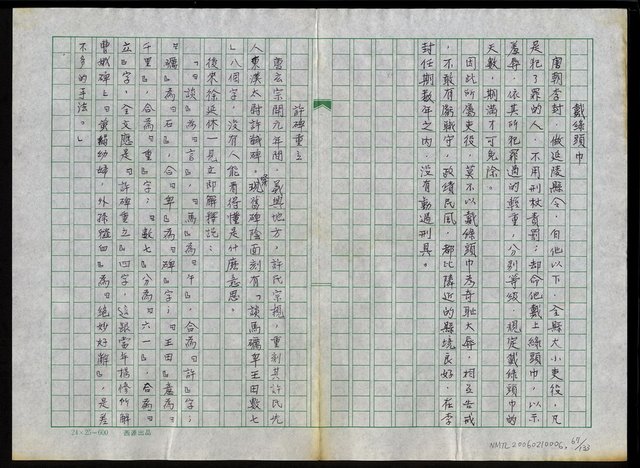 戴綠頭巾
唐朝李封，做延陵縣令，自他以下，全縣大小吏役，凡
是犯了罪的人，不用刑杖責罰；却命他戴上綠頭巾，以示
羞辱。依其所犯罪過的輕重，分別等級，規定戴綠頭巾的
天數，期滿才可免除。
因此所屬吏役，莫不以戴綠頭巾為奇恥大辱，相互告戒
，不敢有虧職守，政績民風，都比隣近的縣境良好。在李
封任期數年之內，沒有動過刑具。
許碑重立
唐玄宗開元年間，義興地方，許氏宗親，重刻其許氏先
人東漢太尉許馘碑。現舊碑陰面刻有「談馬礪畢王田數七
」八個字，沒有人能看得懂是什麼意思。
後來徐延休一見立即解釋說：
「『談』為『言』，『馬』為『午』，合為『許』字；
『礪』為『石』，合『卑』為『碑』字；『王田』產為『
千里』，合為『重』字；『數七』分為『六一』，合為『
立』字，全文應是『許碑重立』四字，這跟當年楊修所解
曹娥碑上『黃絹幼婦，外孫韲臼』為『絕妙好辭』，是差
不多的手法。」
24×25=600 西源出品
NMTL20060210006, 67/133